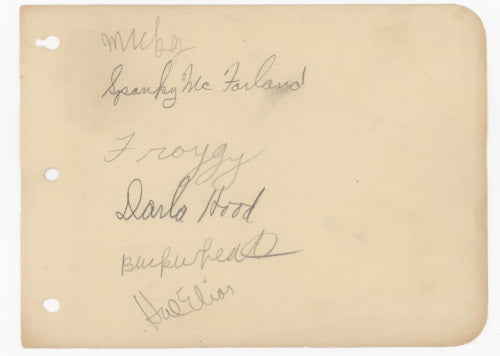 Micky
Spanky McFarland
Froygy
Darla Hood
Buckwheat
Hal Elias